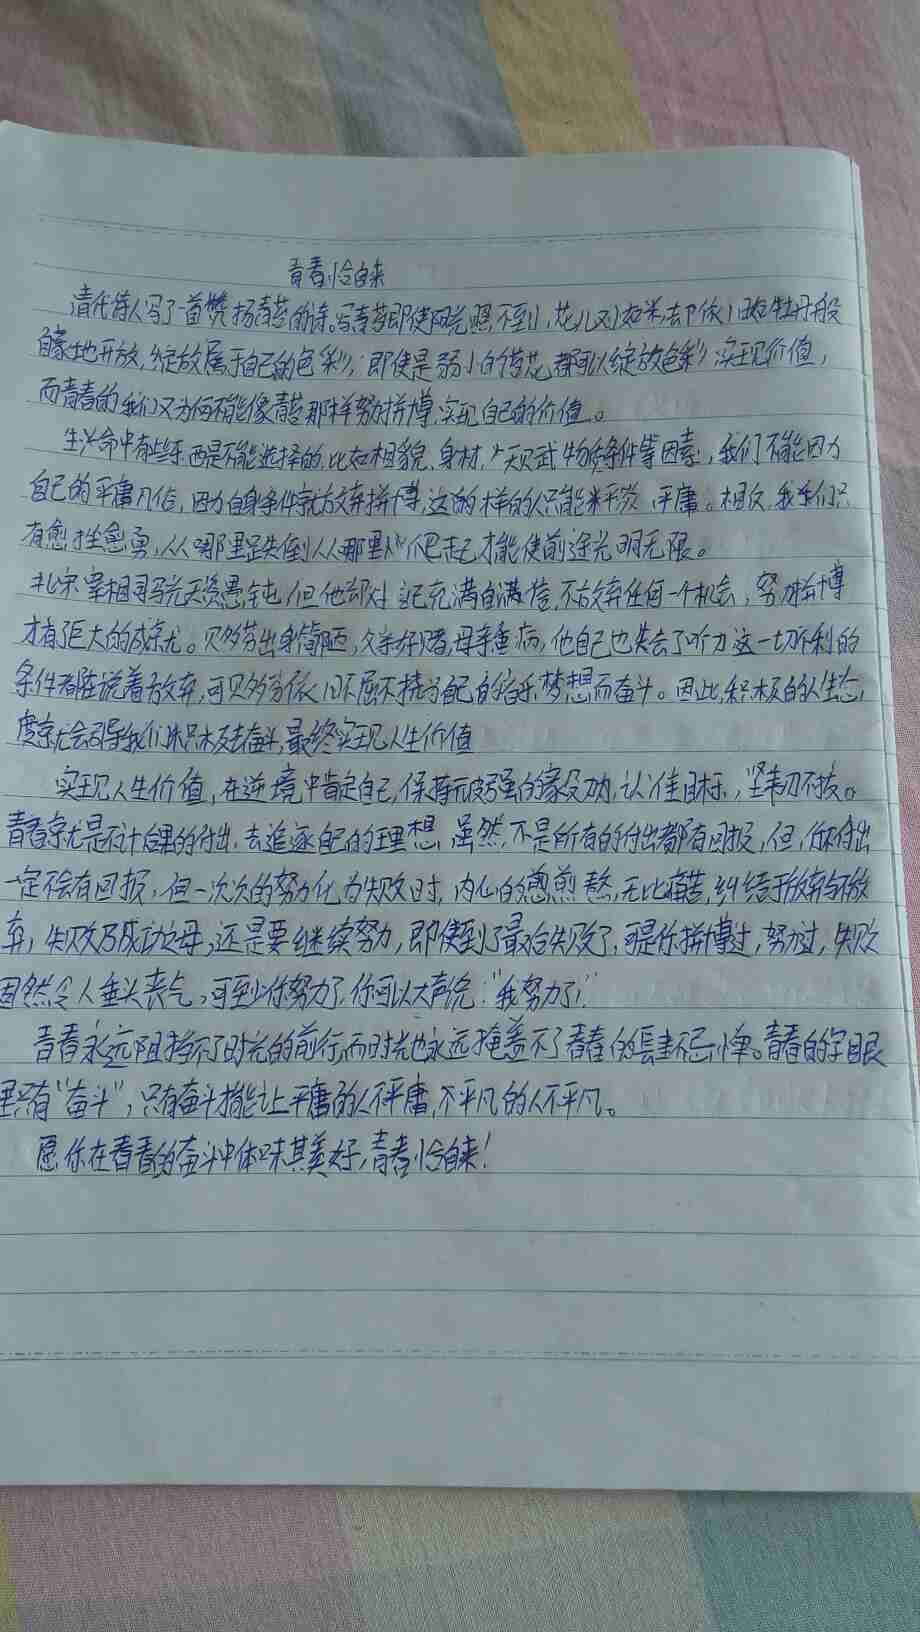 青春恰自来
清代诗人写了一首赞扬青苔的诗。写青苔即使阳光照不到,花儿又小如米,却依旧如牡丹般
自豪地开放,绽放属于自己的色彩,即使是弱小的苔花,都可以绽放色彩,实现价值,
而青春的我们又为何不能像青苔那样努力拼搏,实现自己的价值。
生活命中有些东西是不能选择的,比如相貌、身材、天赋或物质条件等因素,我们不能因为
自己的平庸而自,因为自身条件就放弃拼搏,这的样的人只能平淡、平庸。相反,我们只
有愈挫愈勇,从哪里跌倒从哪里爬起,才能使前途光明无限。
北宋宰相司马光天资愚钝,但他却对自己充满自满信,不放弃任何一个机会,努力拼搏
才有了巨大的成就。贝多芬出身简陋,父亲好赌,母亲重病,他自己也失去了听力,这一切不利的
条件都在说着放弃,可贝多芬依旧不屈不挠为自己的音乐梦想而奋斗。因此,积极的人生态
度就会引导我们积极去奋斗,最终实现人生价值
实现人生价值,在逆境中肯定自己,保持顽强的奋斗,认准目标,坚韧不拔。
青春就是不计后果的付出,去追逐自己的理想,虽然,不是所有的付出都有回报,但,你不付出
一定不会有回报,但一次次的努力化为失败时,内心的煎熬,无比痛苦,纠结于放弃与不放
弃,失败乃成功之母,还是要继续努力,即使到了最后失败了,可是你拼搏过,努力过,失败
固然令人垂头丧气,可至少你努力了,你可以大声说:“我努力了!”
青春永远阻挡不了时光的前行,而时光也永远掩盖不了青春的肆无忌惮。青春的字眼
里只有“奋斗”,只有奋斗才能让平庸的人不平庸,不平凡的人不平凡。
愿你在青春的奋斗中体味其美好,青春恰自来!